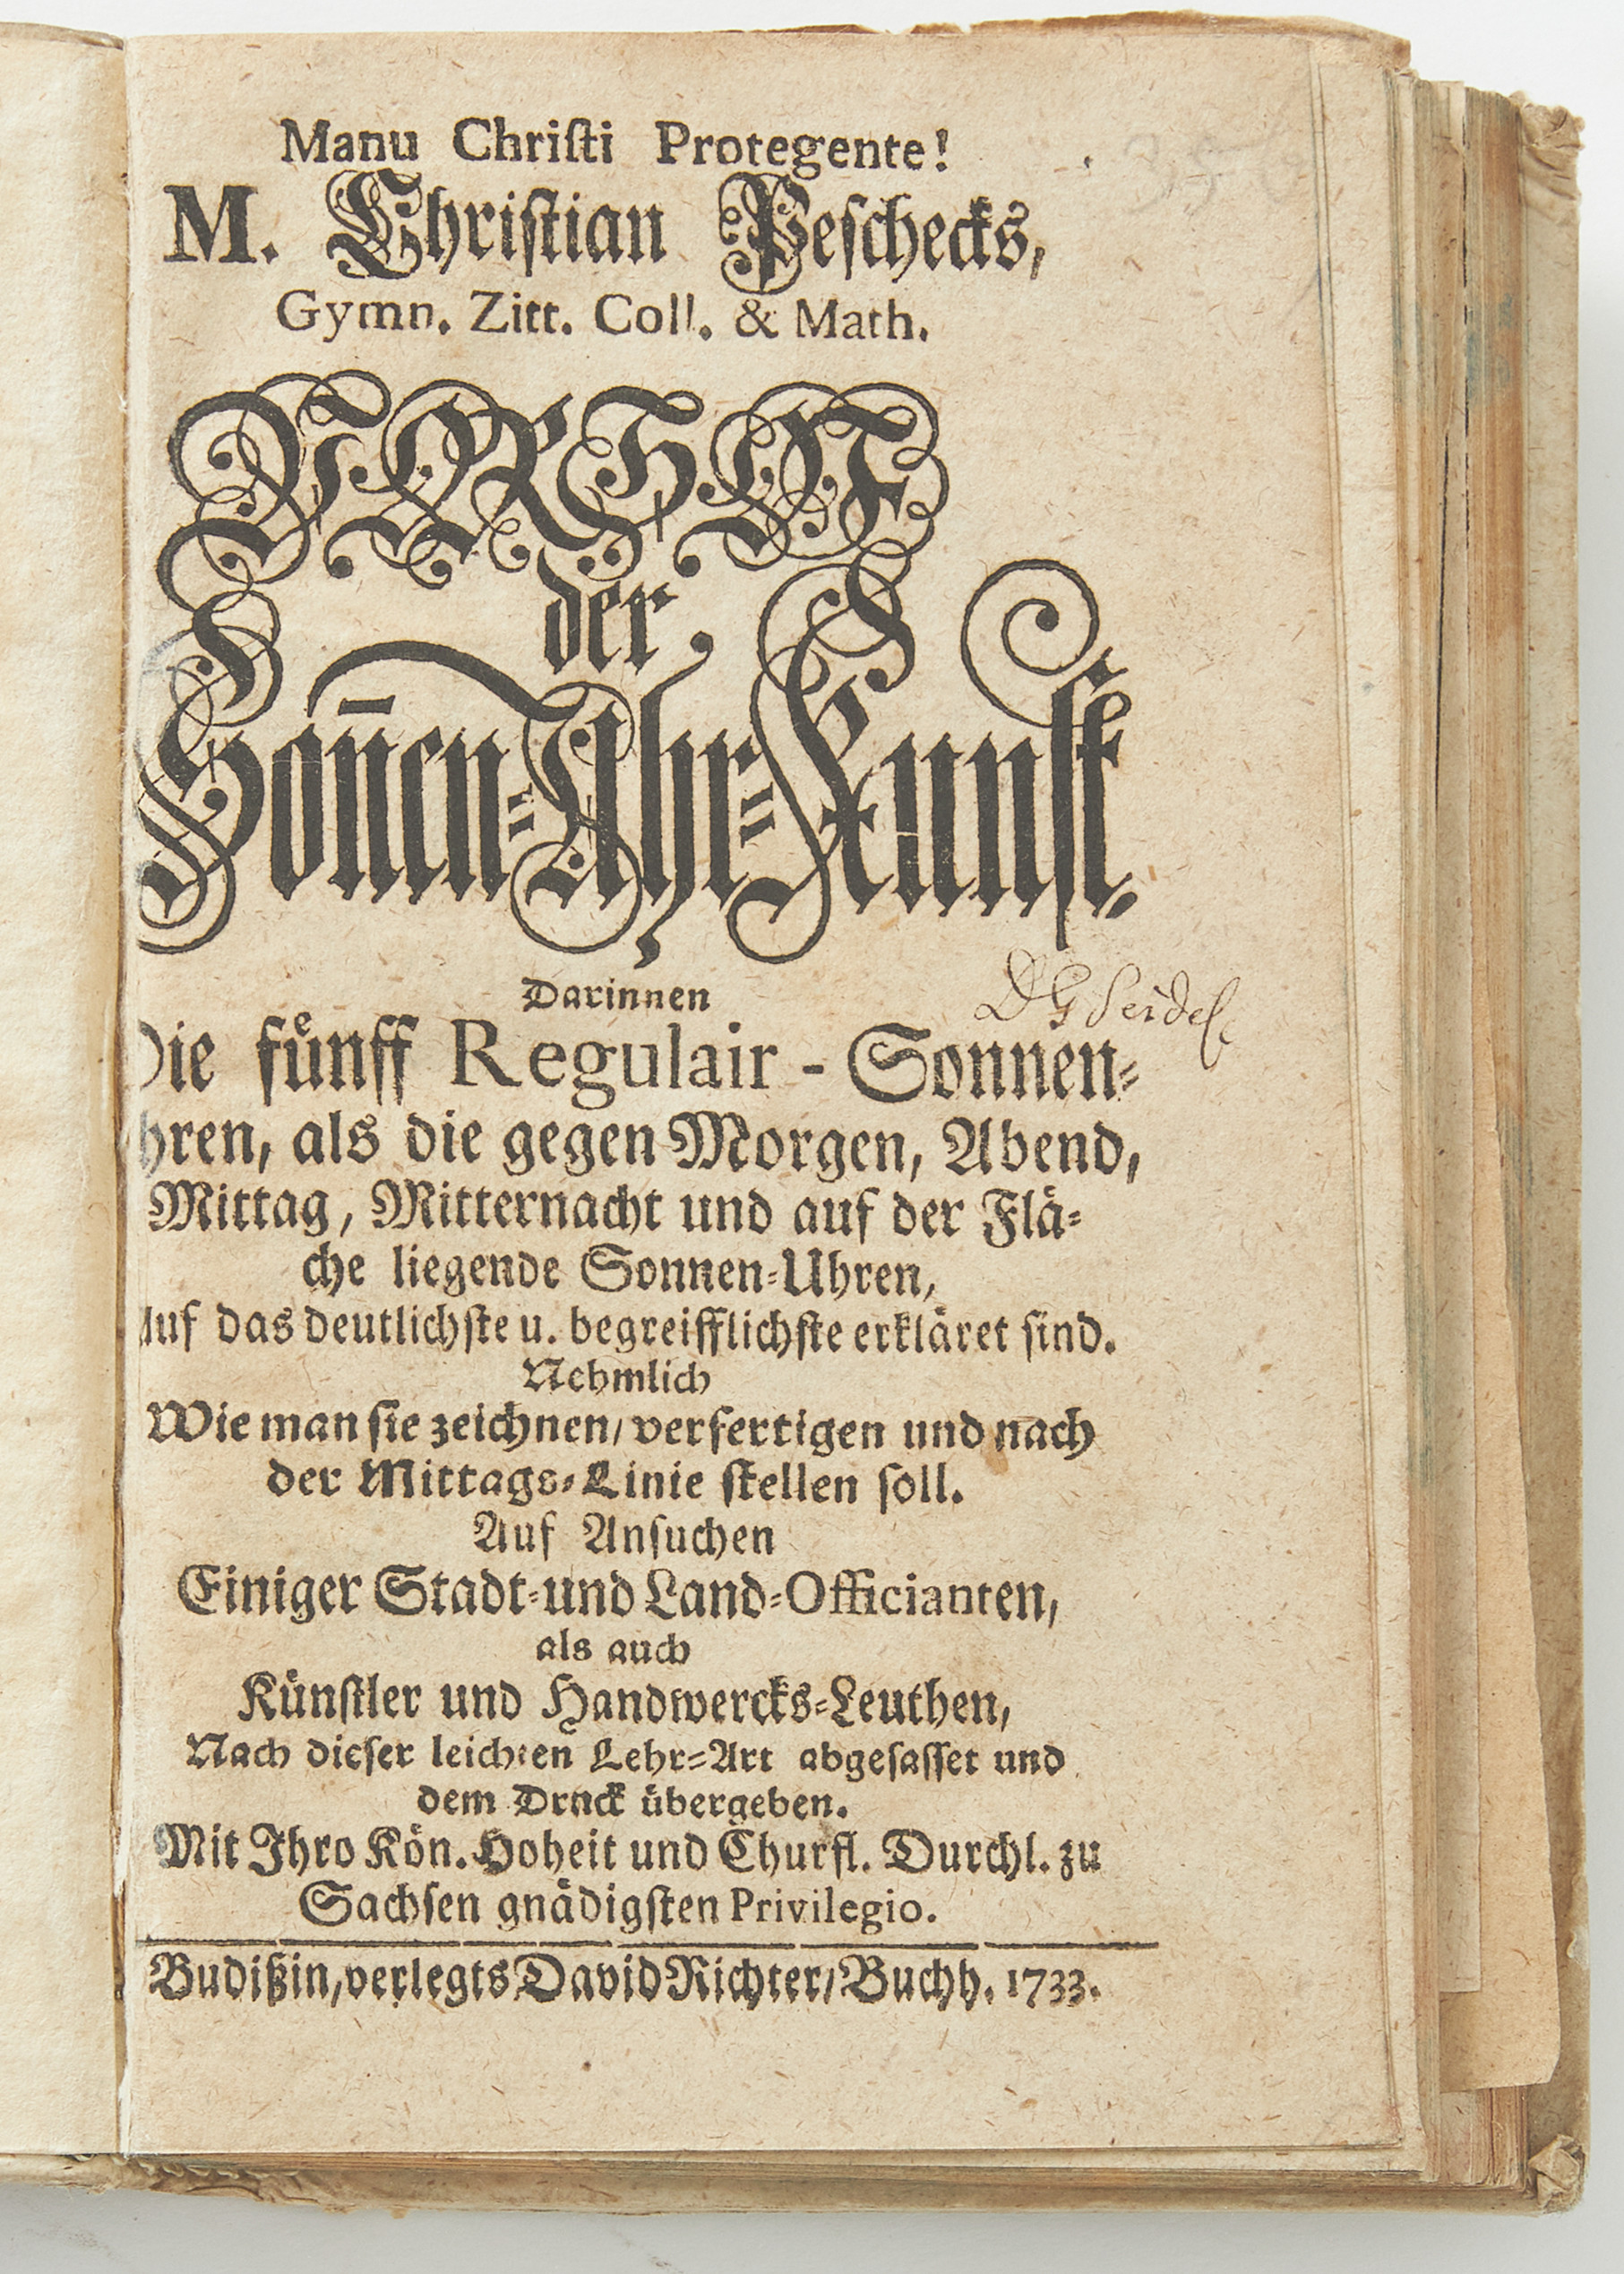 Manu Chriſti Protegente!
M. Chriſtian Peſchecks,
Gymn. Zitt. Coll. & Math.
VORHOF
der
Soñen-Uhr-Kunſt,
Darinnen
DGSeidel
Die fuͤnff Regulair - Sonnen-
hren, als die gegen Morgen, Abend,
Mittag, Mitternacht und auf der Flaͤ-
che liegende Sonnen-Uhren,
Auf das deutlichſte u. begreifflichſte erklaͤret ſind.
Nehmlich
Wie man ſie zeichnen/ verfertigen und nach
der Mittags-Linie ſtellen ſoll.
Auf Anſuchen
Einiger Stadt-und Land-Officianten,
als auch
Kuͤnſtler und Handwercks-Leuthen,
Nach dieſer leichten Lehr-Art abgefaſſet und
dem Drnck uͤbergeben.
Mit Ihro Koͤn. Hoheit und Churfl. Durchl. zu
Sachſen gnaͤdigſten Privilegio.
Budißin/verlegts David Richter/Buchh. 1733.